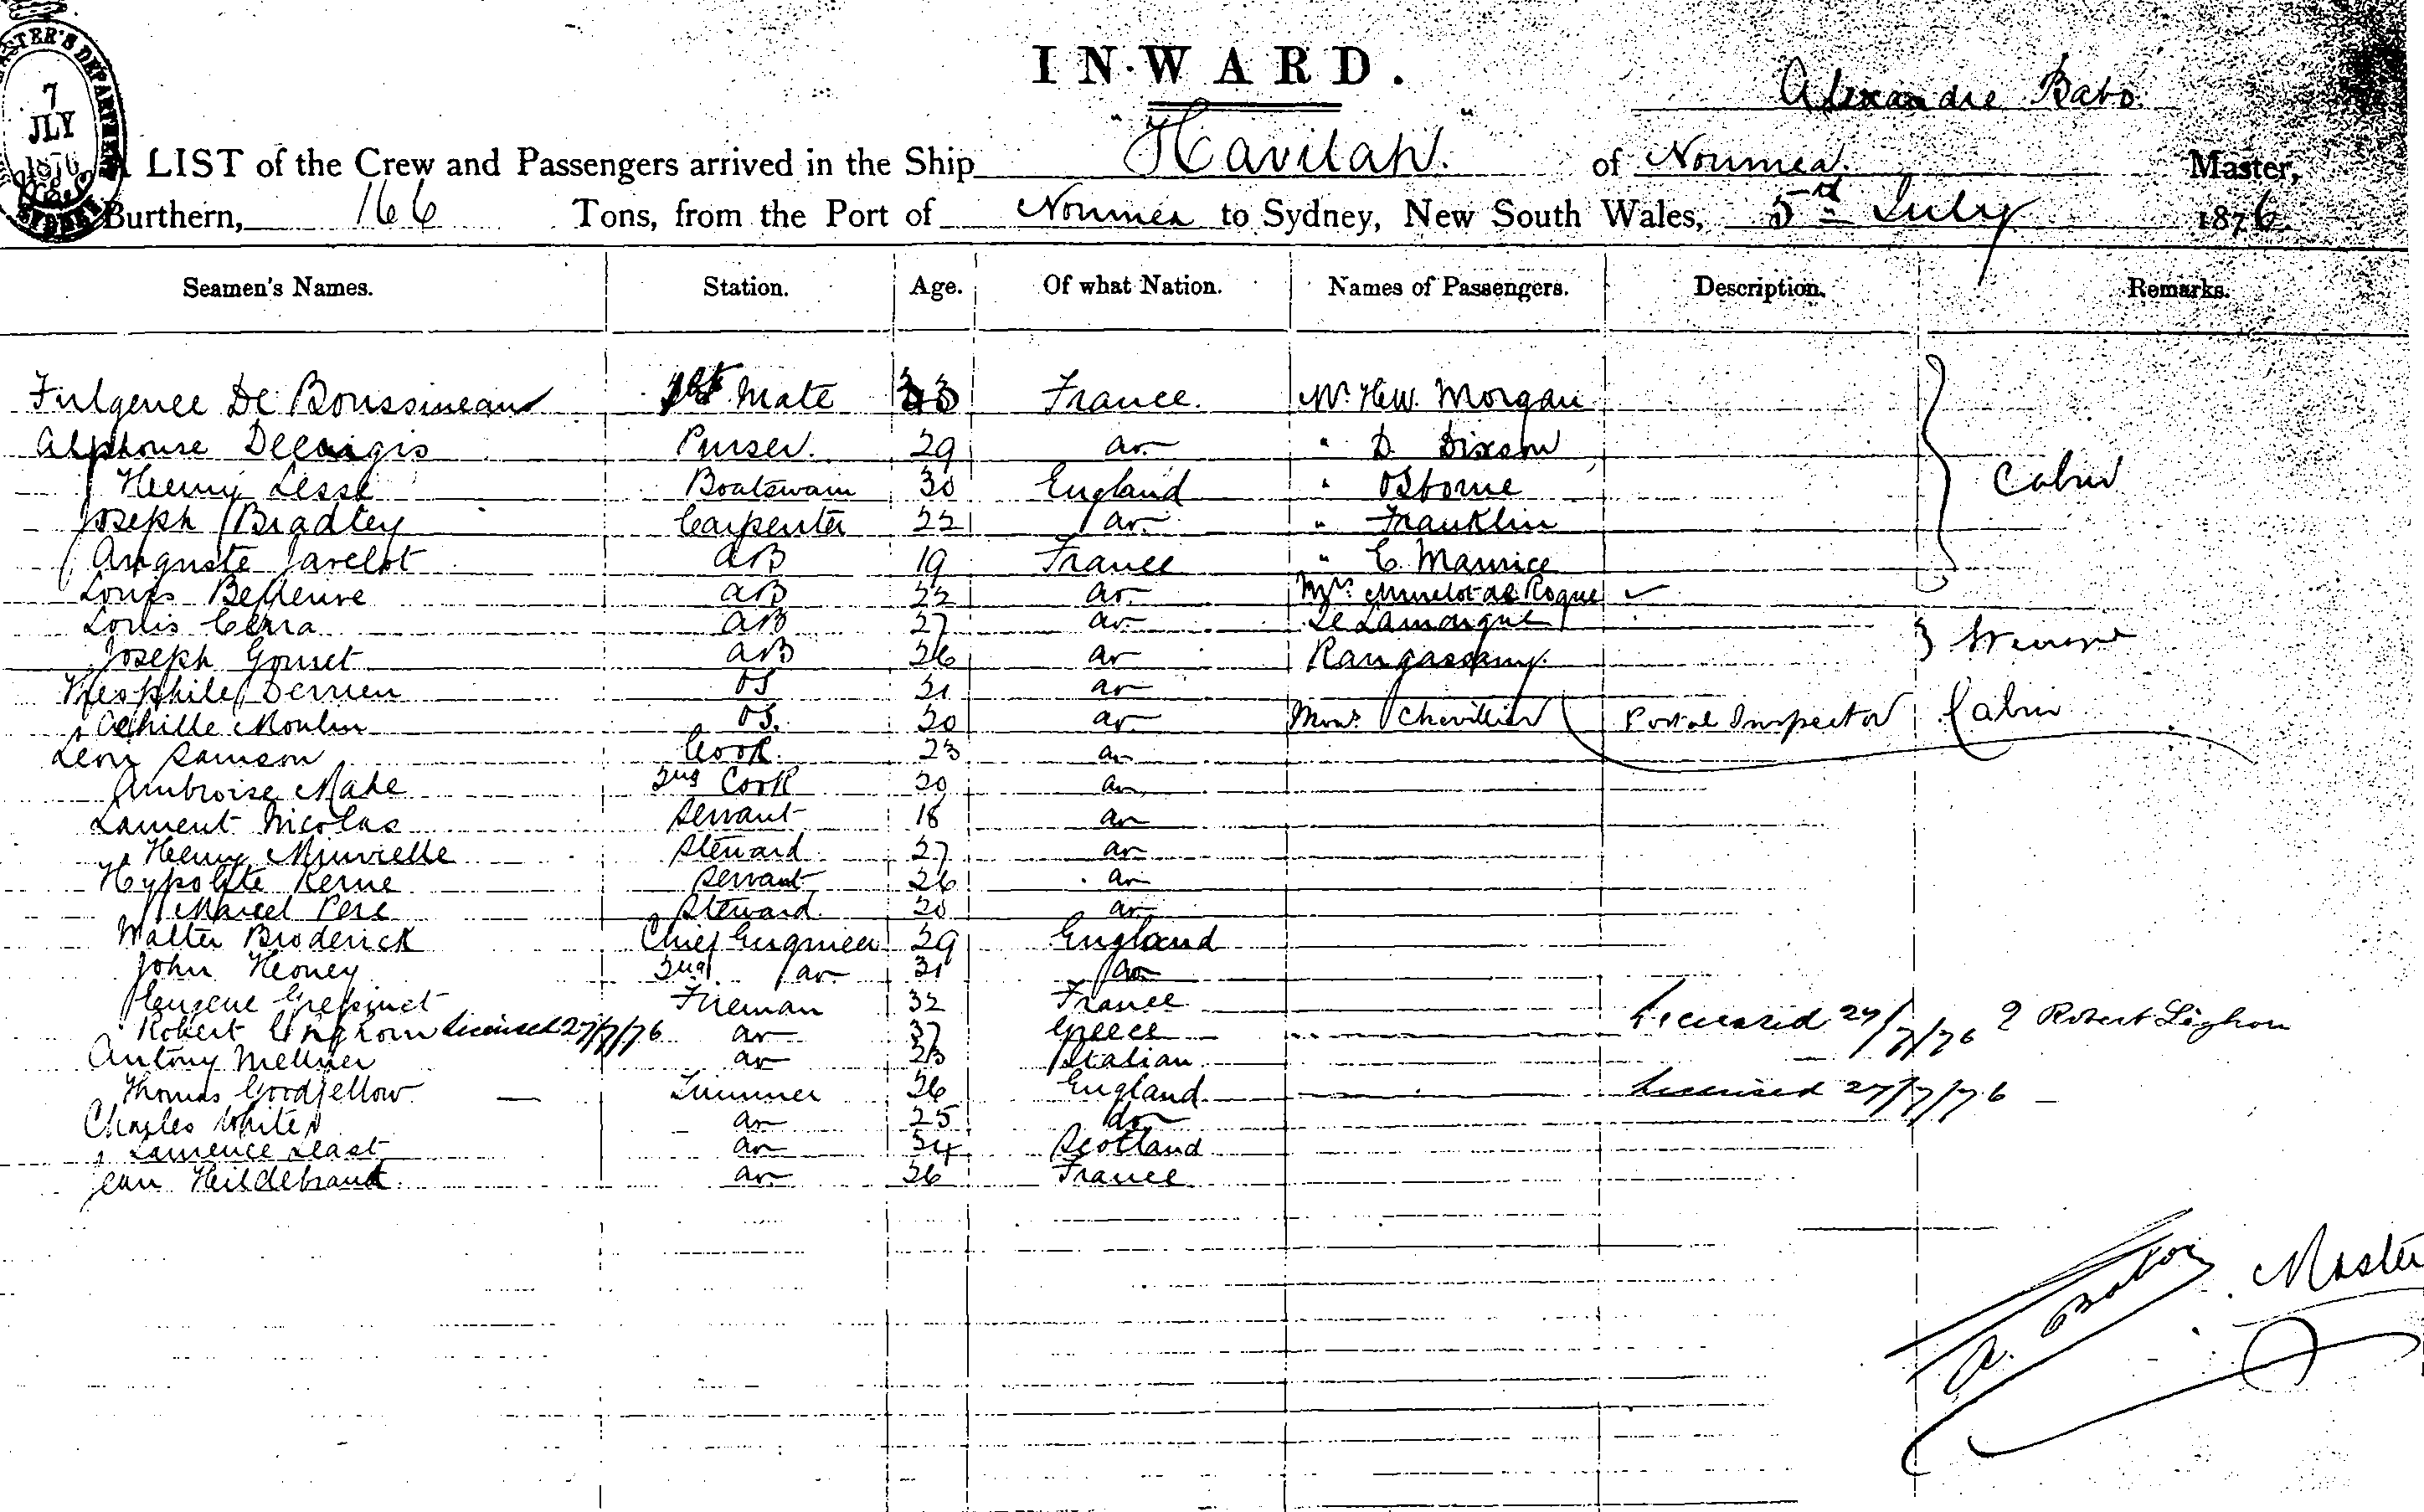 INWARD.
Alexandre Bato
"Havilah."
A LIST of the Crew and Passengers arrived in the Ship Havilah. of Noumea. Master,
Burthern, 166 Tons, from the Port of Noumea to Sydney, New South Wales, 5 July 1876.
7
JLY
1876
SYDNEY
Seamen's Names. Station. Age. Of what Nation. Names of Passengers. Description. Remarks.
Fulgence De Boussineau 1st Mate France. Mr. H.W. Morgan
Alphonse Purser. 29 do " D Dixson
Henry Lesse Boatswain 30 England " Osborne Cabin
Joseph Bradley Carpenter 22 do " Franklin
Auguste Javelot AB 19 France " C Maurice
Louis Belleuve AB 22 do Mrs. de Roque
Louis Cerra AB 27 do De Lamorque
Joseph Gouset AB 26 do Rangassamy.
Theophile Derrien OS 21 do
Achille Moulin OS. 20 do Mons. Chevillier Postal Inspector Cabin
Leon Samson Cook 23 do
Ambroise Mahe 2nd Cook 20 do
Laurent Nicolas Servant 18 do
Henry Minvielle Steward 27 do
Hypolite Kerne Servant 26 do
Marcel Pere Steward 20 do
Walter Broderick Chief Engineer 29 England
John Heoney 2nd do 31 do
Eugene Fireman 32 France
Robert Licensed 27/7/76 do 37 Greece Licensed 27/7/76 ? Robert Lighon
Antony Mellner do 23 Italian
Thomas Goodfellow Trimmer 26 England Licensed 27/7/76
Charles White do 25 do
Laurence Least do 34 Scotland
Jean Heildebrandt do 26 France
A. Bato Master